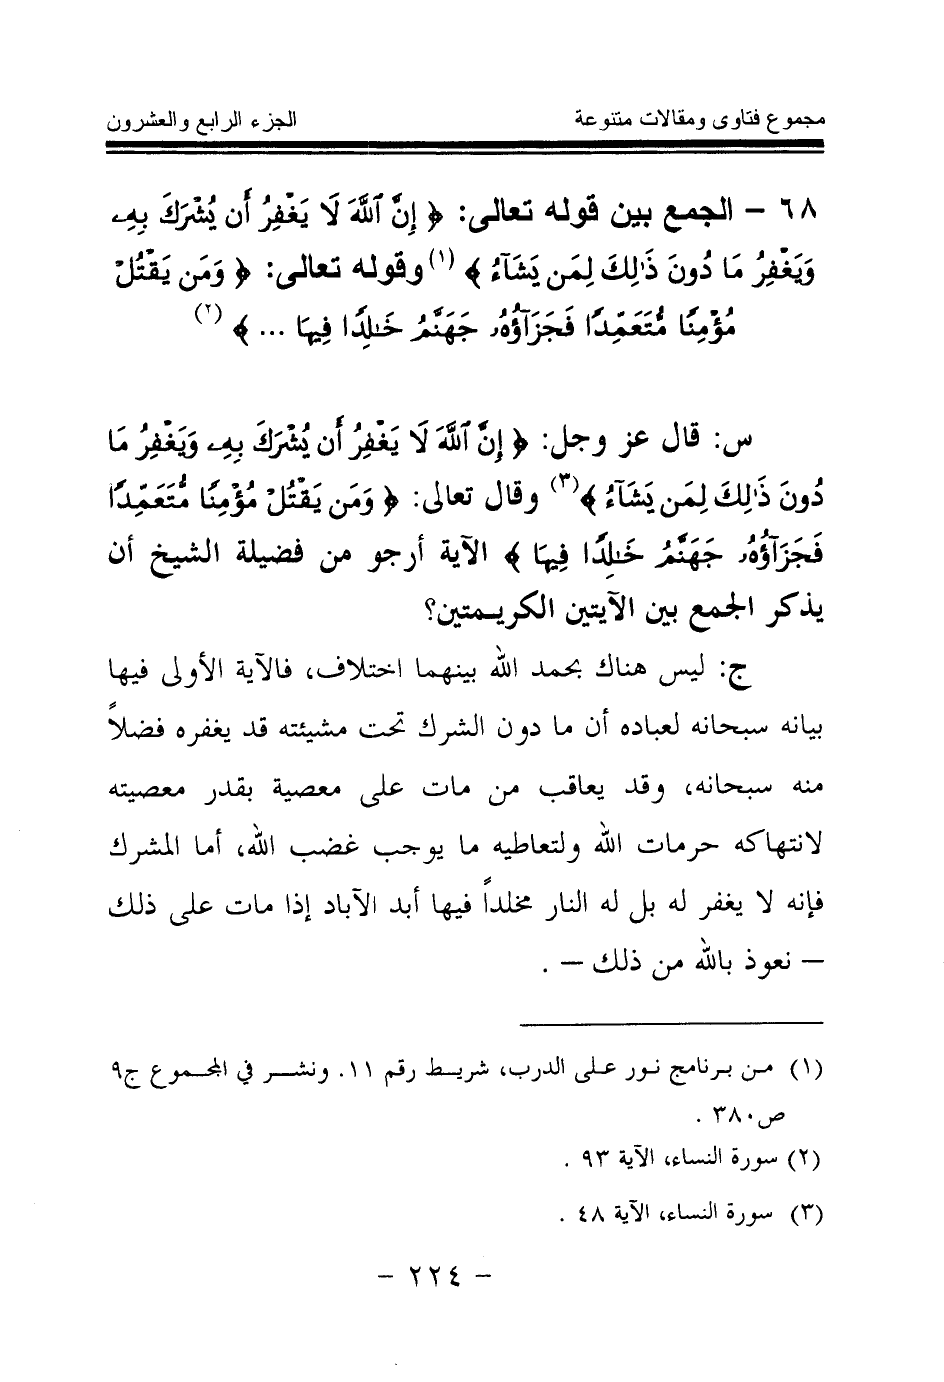 مجموع فتاوى ومقالات متنوعة الجزء الرابع والعشرون
٦٨ – الجمع بين قوله تعالى: ﴿ إِنَّ ٱللَّهَ لَا يَغْفِرُ أَن يُشْرَكَ بِهِۦ
وَيَغْفِرُ مَا دُونَ ذَٰلِكَ لِمَن يَشَآءُ ﴾ (١) وقوله تعالى: ﴿ وَمَن يَقْتُلْ
مُؤْمِنًا مُّتَعَمِّدًا فَجَزَآؤُهُۥ جَهَنَّمُ خَٰلِدًا فِيهَا ... ﴾ (٢)
س: قال عز وجل: ﴿ إِنَّ ٱللَّهَ لَا يَغْفِرُ أَن يُشْرَكَ بِهِۦ وَيَغْفِرُ مَا
دُونَ ذَٰلِكَ لِمَن يَشَآءُ ﴾(٣) وقال تعالى: ﴿ وَمَن يَقْتُلْ مُؤْمِنًا مُّتَعَمِّدًا
فَجَزَآؤُهُۥ جَهَنَّمُ خَٰلِدًا فِيهَا ﴾ الآية أرجو من فضيلة الشيخ أن
يذكر الجمع بين الآيتين الكريمتين؟
ج: ليس هناك بحمد الله بينهما اختلاف، فالآية الأولى فيها
بيانه سبحانه لعباده أن ما دون الشرك تحت مشيئته قد يغفره فضلاً
منه سبحانه، وقد يعاقب من مات على معصية بقدر معصيته
لانتهاكه حرمات الله ولتعاطيه ما يوجب غضب الله، أما المشرك
فإنه لا يغفر له بل له النار مخلداً فيها أبد الآباد إذا مات على ذلك
– نعوذ بالله من ذلك – .
(١) من برنامج نور على الدرب، شريط رقم ١١. ونشر في المجموع ج٩
ص٣٨٠ .
(٢) سورة النساء، الآية ٩٣ .
(٣) سورة النساء، الآية ٤٨ .
– ٢٢٤ –